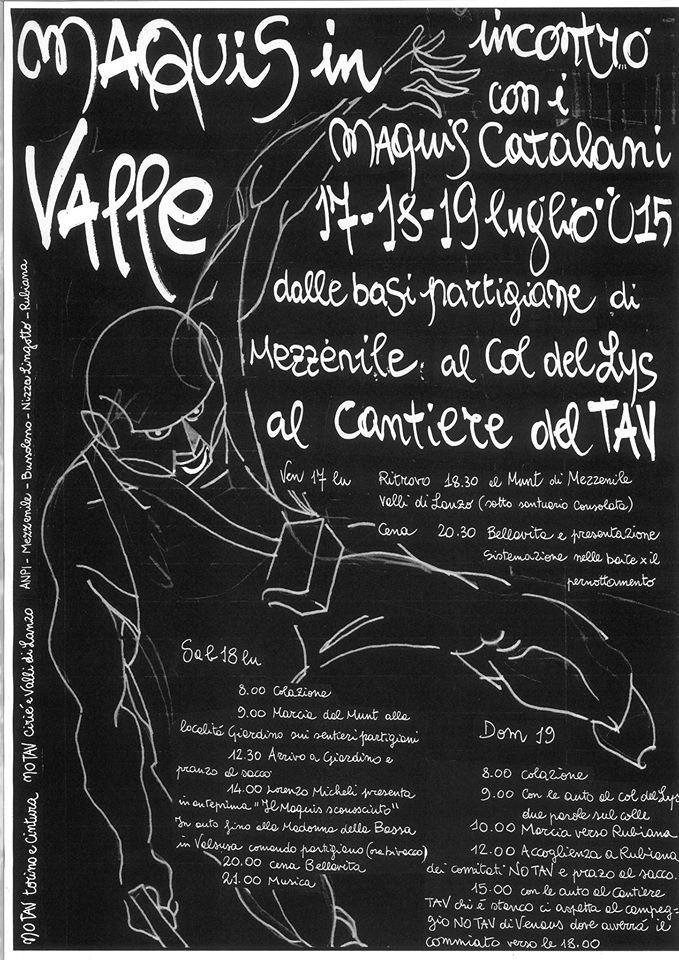 MAQUIS in
Valle
incontro
con i
MAQUIS Catalani
17-18-19 luglio ü15
dalle basi partigiane di
Mezzenile al Col del Lys
al Cantiere del TAV
Ven 17 lu
Ritrovo 18.30 al Munt di Mezzenile
Valli di Lanzo (sotto santuario Consolata)
Cena 20.30 Bellavita e presentazione
Sistemazione nelle baite x il
pernottamento
Sab 18 lu
8.00 Colazione
9.00 Marcia dal Munt alla
località Giardino sui sentieri partigiani
12.30 Arrivo a Giardino e
pranzo al sacco
14.00 Lorenzo Micheli presenta
in anteprima "Il Maquis sconosciuto"
In auto fino alla Madonna della Bassa
in Valsusa comando partigiano (ora bivacco)
20.00 cena Bellavita
21.00 Musica
Dom 19
8.00 colazione
9.00 Con le auto al col del Lys
due parole sul colle
10.00 Marcia verso Rubiana
12.00 Accoglienza a Rubiana
dei comitati NO TAV e prazo al sacco.
15.00 con le auto al Cantiere
TAV chi è stanco ci aspetta al campeg-
gio NO TAV di Venaus dove avverrà il
commiato verso le 18.00
NO TAV torino e cintura NO TAV Cirié e Valli di Lanzo ANPI - Mezzenile - Bussoleno - Nizza Lingotto - Rubiana